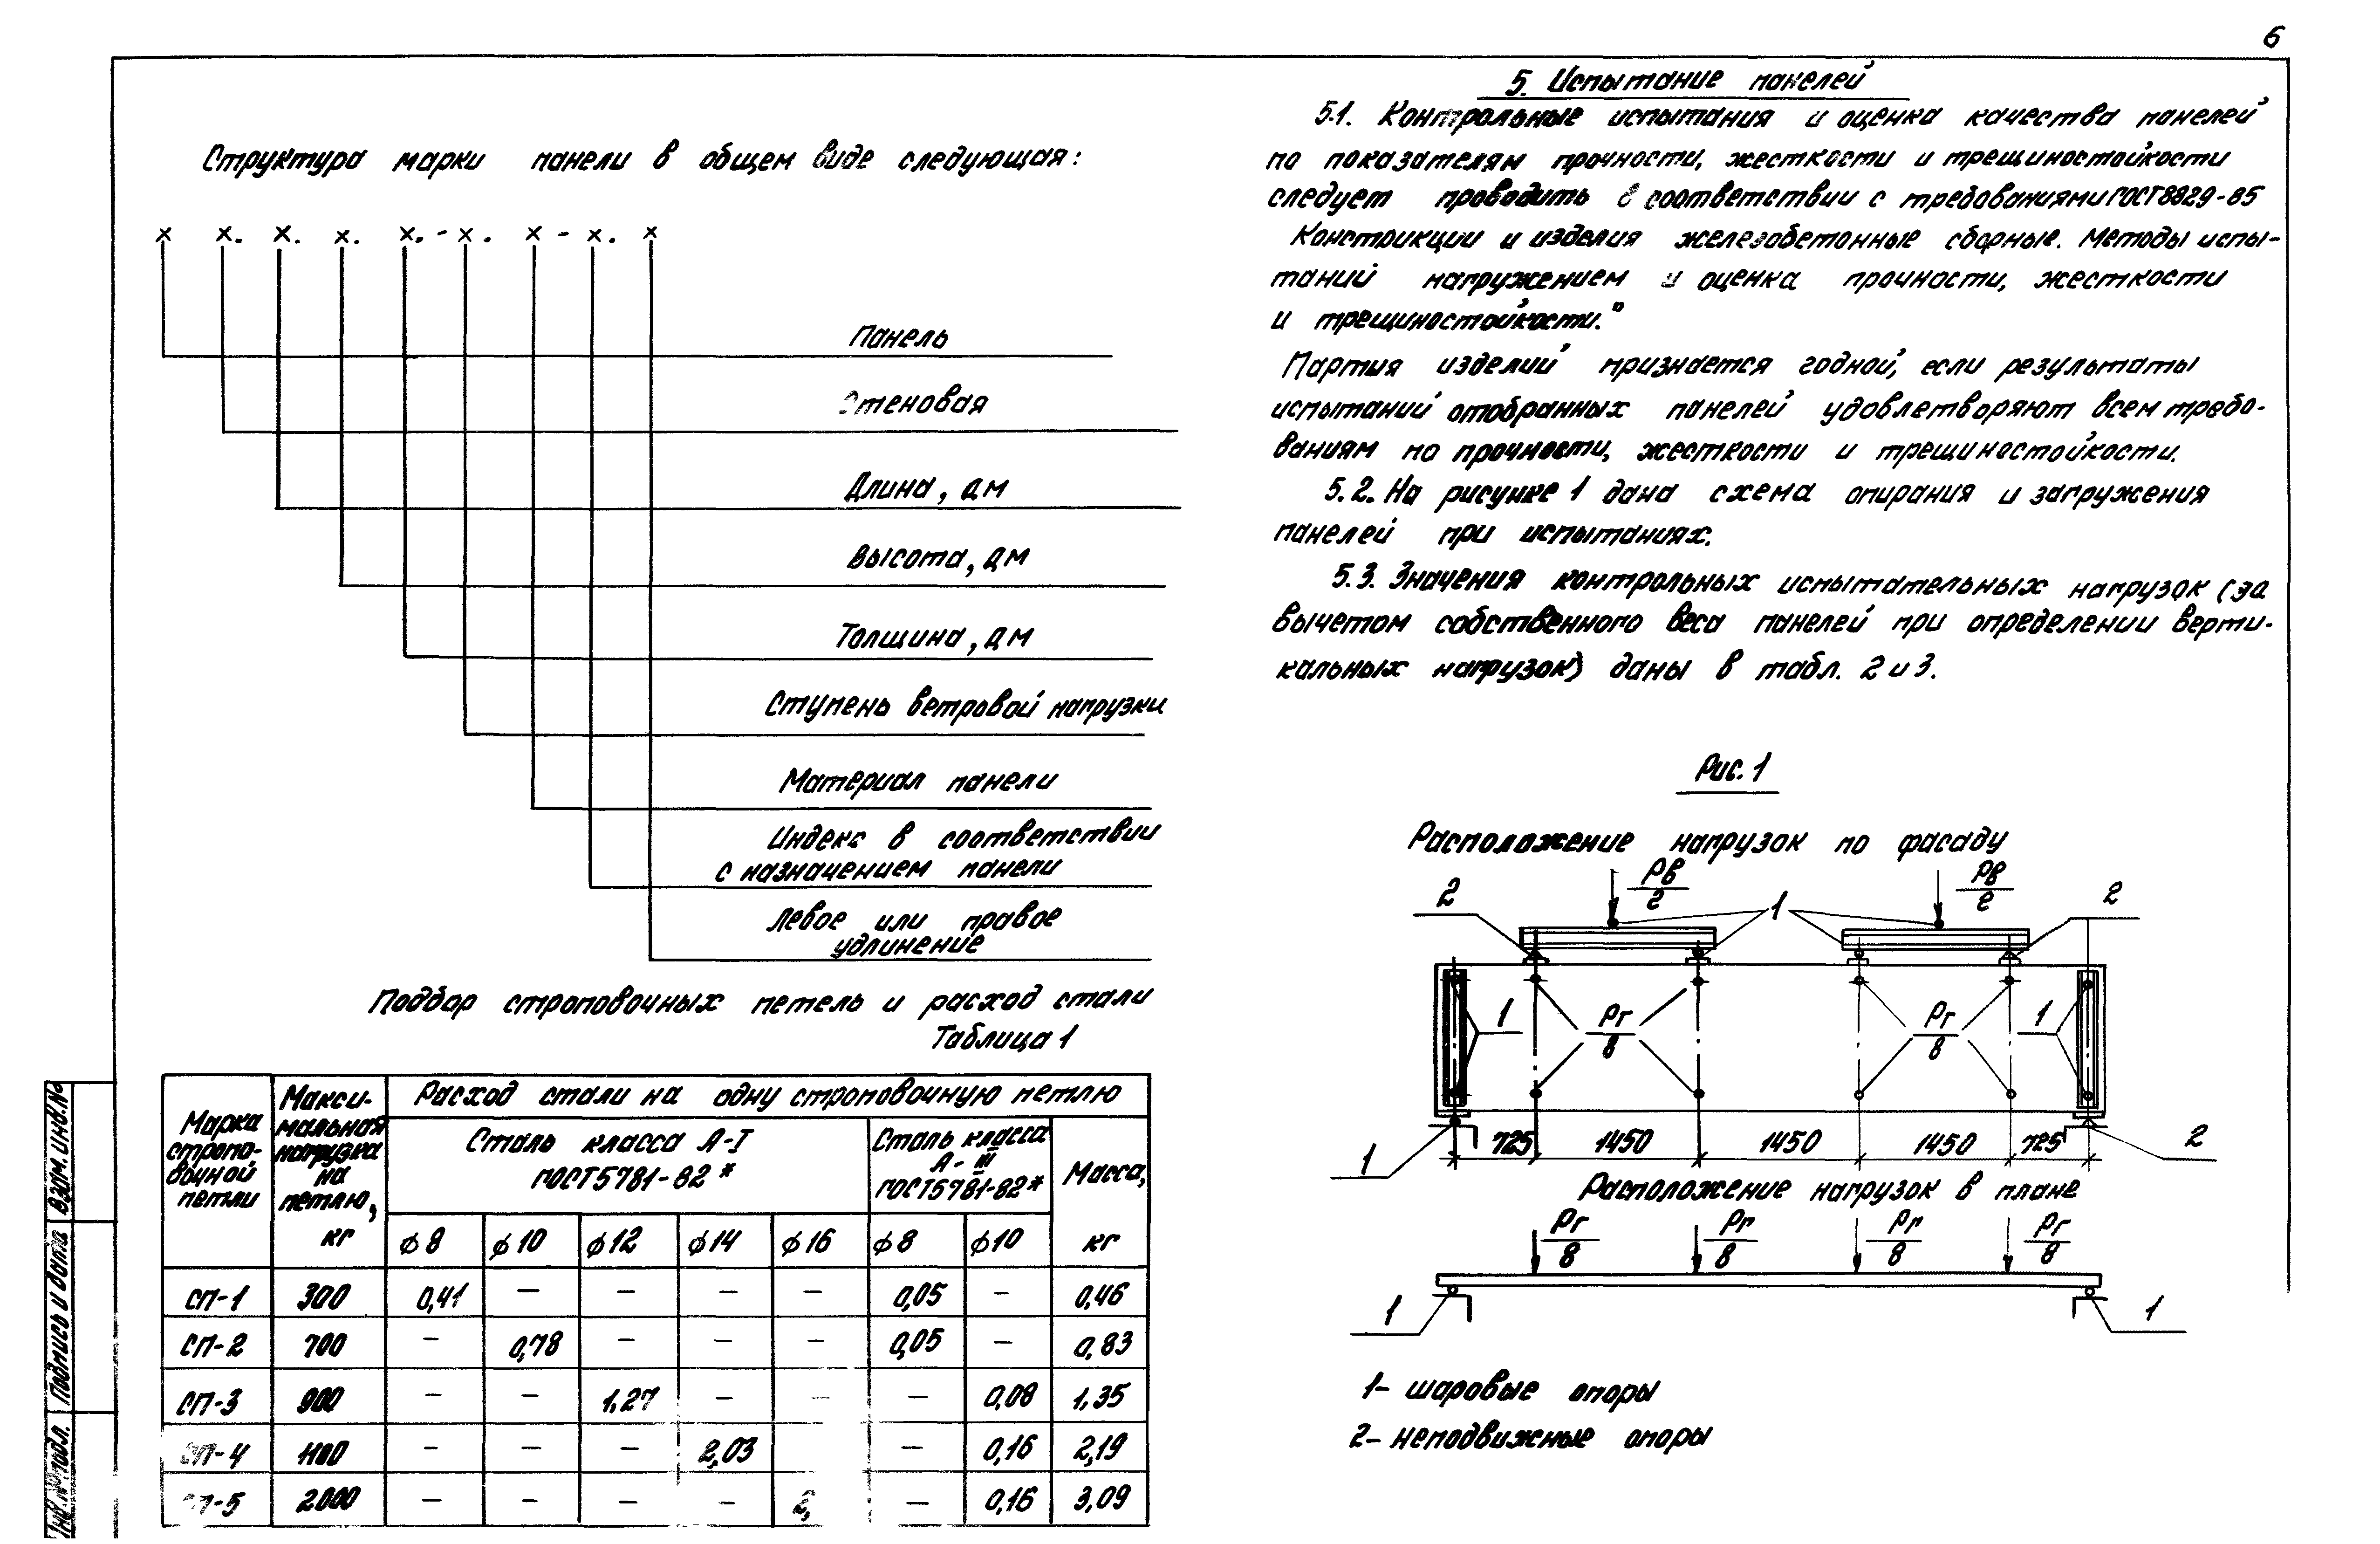 6
Структура марки панели в общем виде следующая:
х х. х. х. х.-х. х-х. х
Панель
Стеновая
Длина, дм
Высота, дм
Толщина, дм
Ступень ветровой нагрузки
Материал панели
Индекс в соответствии
с назначением панели
Левое или правое
удлинение
Подбор строповочных петель и расход стали
Таблица 1
Марка
стропо-
вочной
петли
Макси-
мальная
нагрузка
на
петлю,
кг
Расход стали на одну строповочную петлю
Сталь класса А-I
ГОСТ 5781-82*
Сталь класса
А-III
ГОСТ 5781-82*
Масса,
кг
ϕ8 ϕ10 ϕ12 ϕ14 ϕ16 ϕ8 ϕ10
СП-1 300 0,41 – – – – 0,05 – 0,46
СП-2 700 – 0,78 – – – 0,05 – 0,83
СП-3 900 – – 1,27 – – – 0,08 1,35
СП-4 1100 – – – 2,03 – 0,16 2,19
СП-5 2000 – – – – 2, – 0,16 3,09
Инв.№подл. Подпись и дата Взам.инв.№
5. Испытание панелей
5.1. Контрольные испытания и оценка качества панелей
по показателям прочности, жесткости и трещиностойкости
следует проводить в соответствии с требованиями ГОСТ 8829-85
Конструкции и изделия железобетонные сборные. Методы испы-
таний нагружением и оценка прочности, жесткости
и трещиностойкости."
Партия изделий признается годной, если результаты
испытаний отобранных панелей удовлетворяют всем требо-
ваниям по прочности, жесткости и трещиностойкости.
5.2. На рисунке 1 дана схема опирания и загружения
панелей при испытаниях.
5.3. Значения контрольных испытательных нагрузок (за
вычетом собственного веса панелей при определении верти-
кальных нагрузок) даны в табл. 2 и 3.
Рис. 1
Расположение нагрузок по фасаду
2 Рв/2 1 Рв/2 2
1 Рг/8 Рг/8 1
1 725 1450 1450 1450 725 2
Расположение нагрузок в плане
Рг/8 Рг/8 Рг/8 Рг/8
1 1
1- шаровые опоры
2- неподвижные опоры